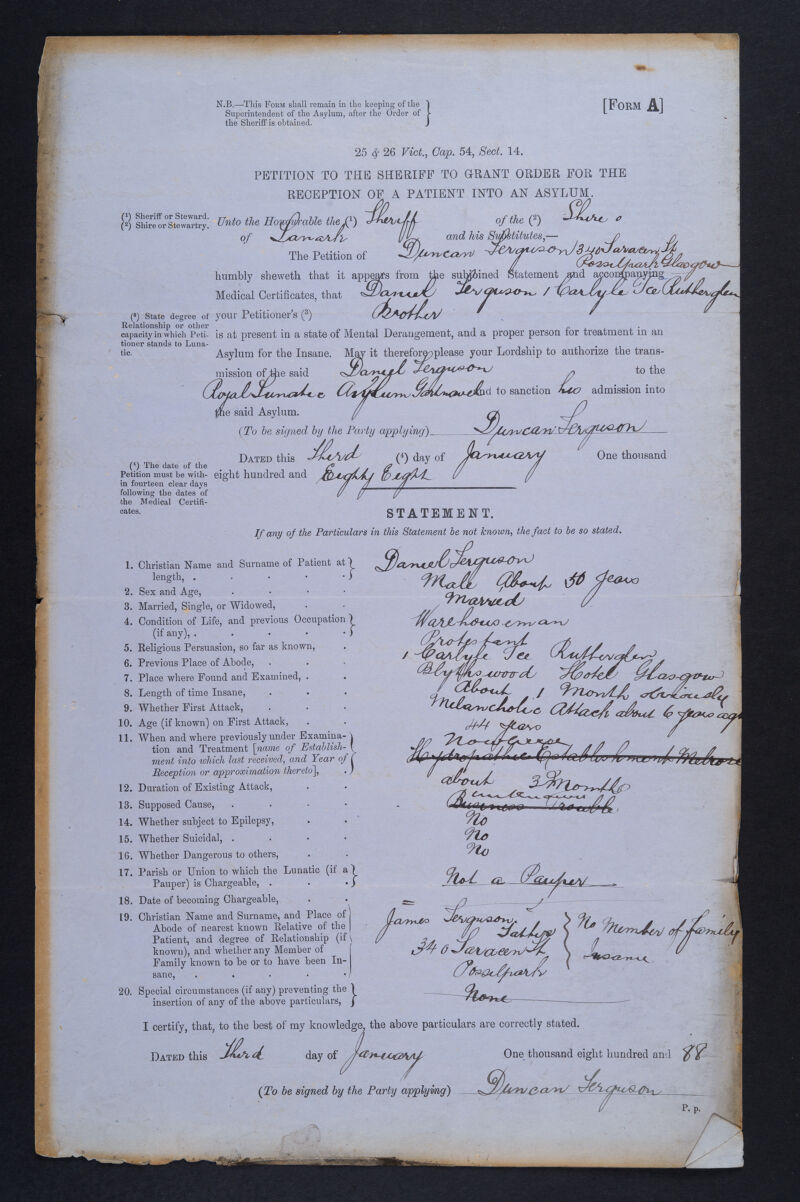 N.B.—This Form shall remain in the keeping of the
Superintendent of the Asylum, after the Order of
the Sheriff is obtained.
[Form A]
25 & 26 Vict., Cap. 54, Sect. 14.
PETITION TO THE SHERIFF TO GRANT ORDER FOR THE
RECEPTION OF A PATIENT INTO AN ASYLUM.
(¹) Sheriff or Steward.
(²) Shire or Stewartry.
Unto the Honourable the (¹) Sheriff of the (²) Shire
of Lanark and his Substitutes,—
The Petition of Duncan Ferguson 340 Saracen St
Possilpark Glasgow
humbly sheweth that it appears from the subjoined Statement and accompanying
Medical Certificates, that Daniel Ferguson 1 Carlyle Tce Rutherglen
(³) State degree of
Relationship or other
capacity in which Peti-
tioner stands to Luna-
tic.
your Petitioner's (³) Brother
is at present in a state of Mental Derangement, and a proper person for treatment in an
Asylum for the Insane. May it therefore please your Lordship to authorize the trans-
mission of the said Daniel Ferguson to the
Royal Lunatic Asylum Gartnavel and to sanction his admission into
the said Asylum.
(To be signed by the Party applying) Duncan Ferguson
Dated this Third (⁴) day of January One thousand
eight hundred and Eighty Eight
(⁴) The date of the
Petition must be with-
in fourteen clear days
following the dates of
the Medical Certifi-
cates.
STATEMENT.
If any of the Particulars in this Statement be not known, the fact to be so stated.
1. Christian Name and Surname of Patient at
length, . Daniel Ferguson
2. Sex and Age, Male About 50 Years
3. Married, Single, or Widowed, Married
4. Condition of Life, and previous Occupation
(if any), . Warehouseman
5. Religious Persuasion, so far as known, Protestant
6. Previous Place of Abode, 1 Carlyle Tce Rutherglen
7. Place where Found and Examined, Blythswood Hotel Glasgow
8. Length of time Insane, About 1 Month
9. Whether First Attack, Melancholic Attack about 6 years ago
10. Age (if known) on First Attack, 44 years
11. When and where previously under Examina-
tion and Treatment [name of Establish-
ment into which last received, and Year of
Reception or approximation thereto],
Nowhere
Hydropathic Establishment Melrose
12. Duration of Existing Attack, about 3 Months
13. Supposed Cause, unknown
Business Trouble
14. Whether subject to Epilepsy, No
15. Whether Suicidal, No
16. Whether Dangerous to others, No
17. Parish or Union to which the Lunatic (if a
Pauper) is Chargeable, Not a Pauper
18. Date of becoming Chargeable, —
19. Christian Name and Surname, and Place of
Abode of nearest known Relative of the
Patient, and degree of Relationship (if
known), and whether any Member of
Family known to be or to have been In-
sane,
James Ferguson, Father
340 Saracen St
Possilpark
No Member of family
Insane
20. Special circumstances (if any) preventing the
insertion of any of the above particulars, None
I certify, that, to the best of my knowledge, the above particulars are correctly stated.
Dated this Third day of January One thousand eight hundred and 88
(To be signed by the Party applying) Duncan Ferguson
P. p.